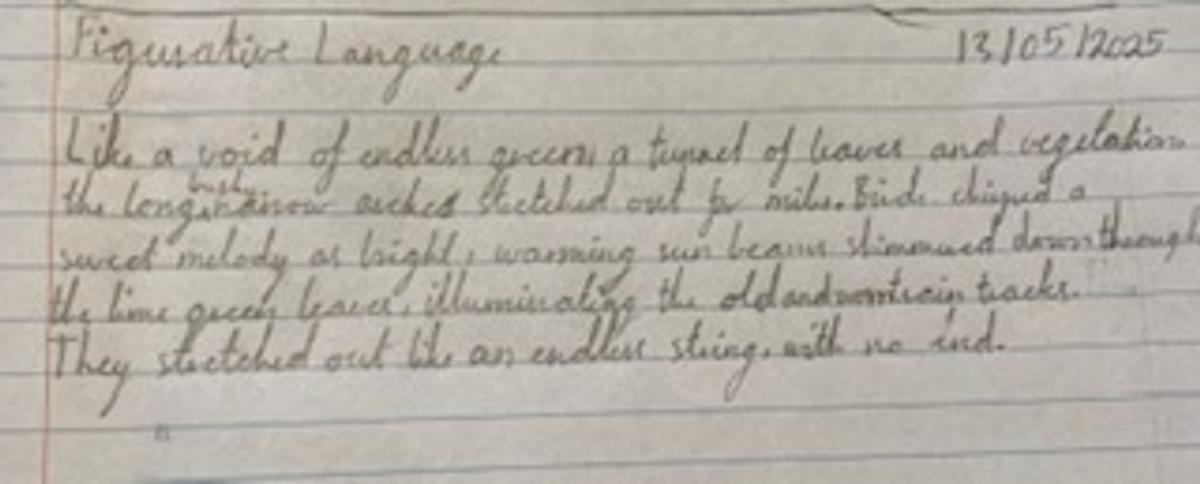 Figurative Language 13/05/2025
Like a void of endless green, a tunnel of leaves and vegetation
bushy
the long, narrow arches stretched out for miles. Birds chirped a
sweet melody as bright, warming sun beams shimmered down through
the lime green leaves, illuminating the old and worn train tracks.
They stretched out like an endless string, with no end.